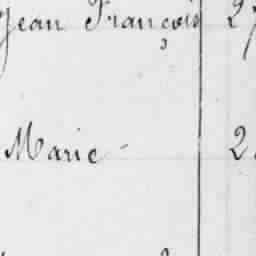 Jean François 2
Marie 2